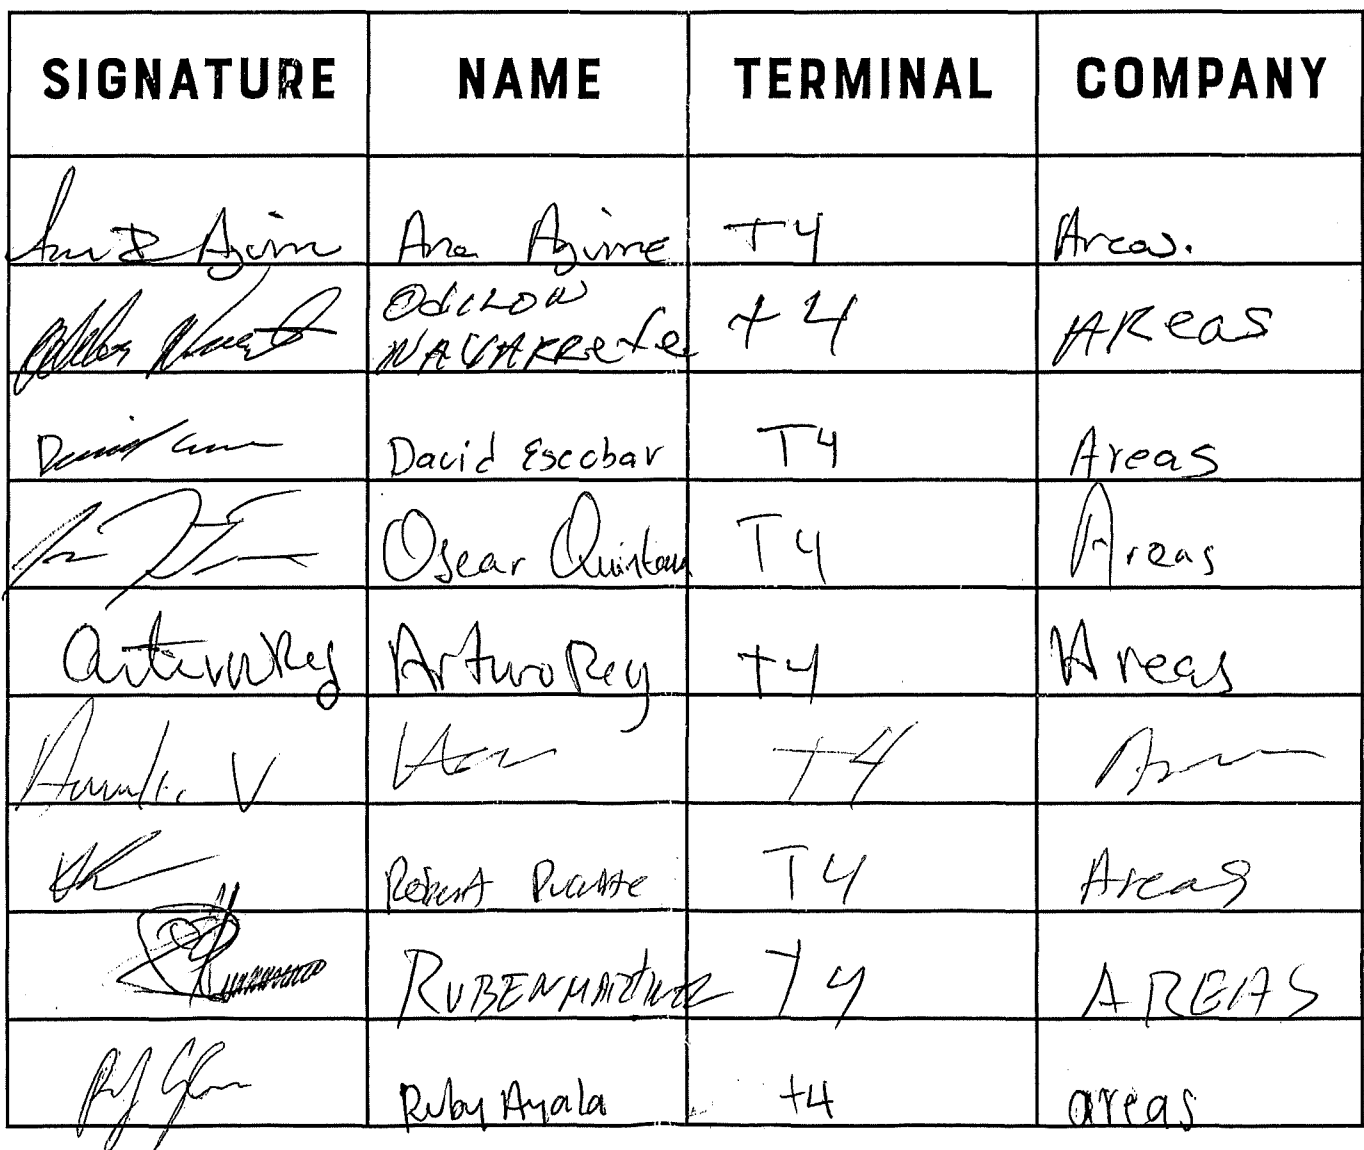 SIGNATURE NAME TERMINAL COMPANY
Ana Aguirre T4 Areas.
ODILON
NAVARRETE t4 AReas
David David Escobar T4 Areas
Oscar Quintana T4 Areas
Arturo Rey Arturo Rey t4 Areas
V t4
Robert T4 Areas
RUBEN MARTINEZ T4 AREAS
Ruby Ayala t4 areas